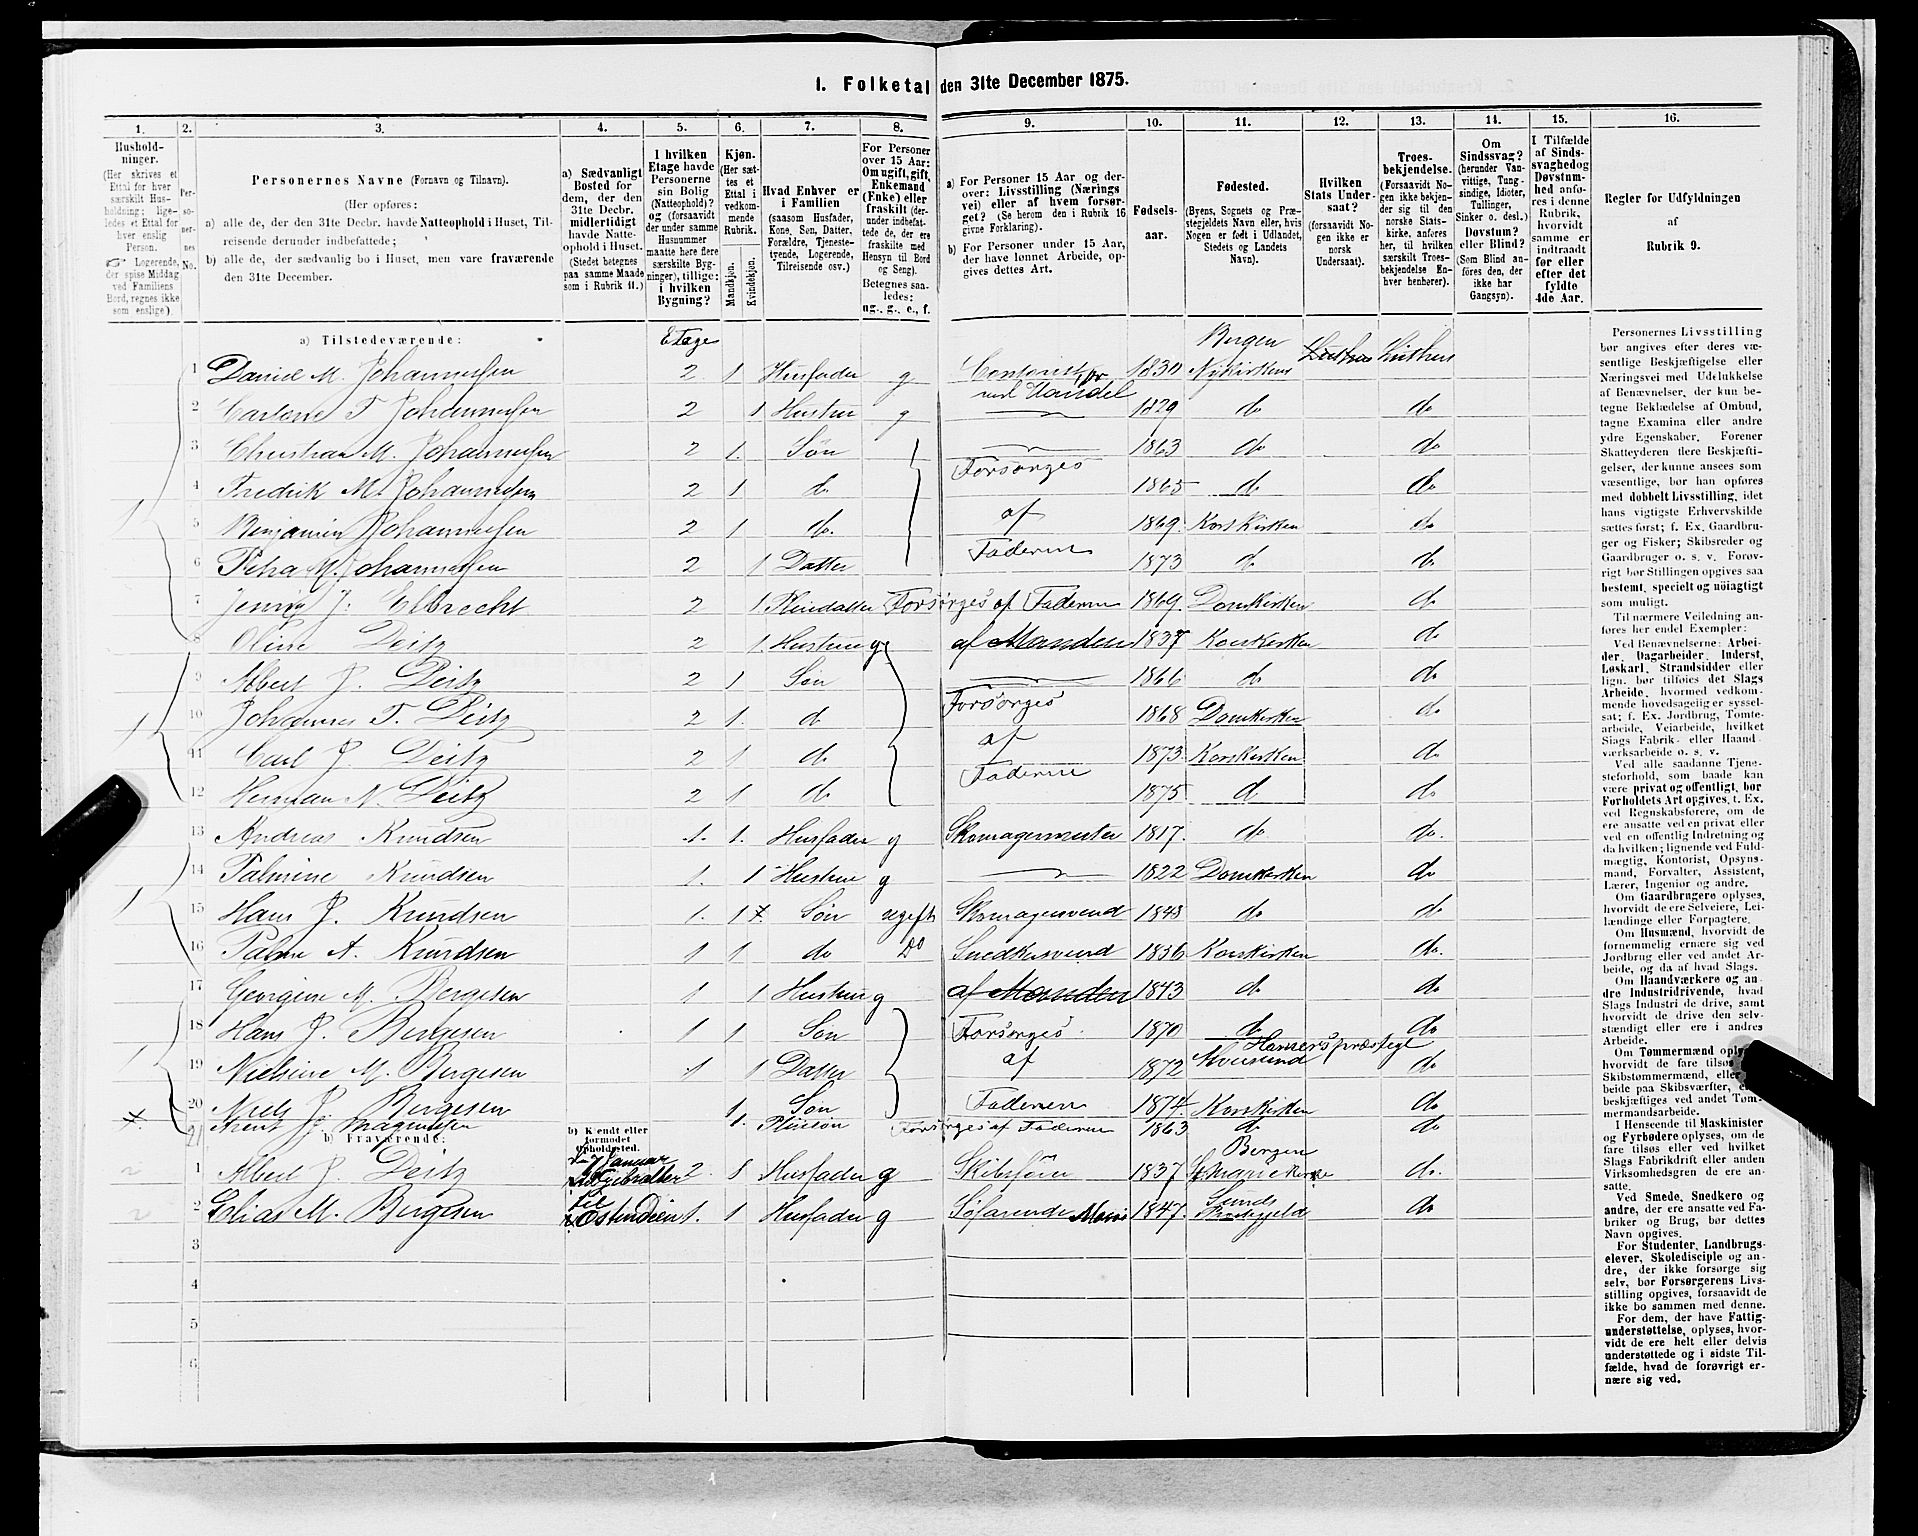 1. Folketal den 31te December 1875.
1. 2. 3. 4. 5. 6. 7. 8. 9. 10. 11. 12. 13. 14. 15. 16.
Hushold-
ninger.
(Her skrives et
Ettal for hver
særskilt Hus-
holdning; lige-
ledes et Ettal for
hver enslig
Person.
☞ Logerende,
der spise Middag
ved Familiens
Bord, regnes ikke
som enslige)
Per-
soner-
nes
No.
Personernes Navne (Fornavn og Tilnavn).
(Her opføres:
a) alle de, der den 31te Decbr. havde Natteophold i Huset, Til-
reisende derunder indbefattede;
b) alle de, der sædvanlig bo i Huset, men vare fraværende
den 31te December.
a) Sædvanligt
Bosted for
dem, der den
31te Decbr.
midlertidigt
havde Natte-
ophold i Huset.
(Stedet betegnes
paa samme Maade
som i Rubrik 11.)
I hvilken
Etage havde
Personerne
sin Bolig
(Natteophold)?
og (forsaavidt
der under samme
Husnummer
maatte høre flere
særskilte Byg-
ninger), tillige:
i hvilken
Bygning?
Kjøn.
(Her sæt-
tes et
Ettal i
vedkom-
mende
Rubrik.
Mandkjøn.
Kvindekjøn.
Hvad Enhver er
i Familien
(saasom Husfader,
Kone, Søn, Datter,
Forældre, Tjeneste-
tyende, Logerende,
Tilreisende osv.)
For Personer
over 15 Aar:
Om ugift, gift,
Enkemand
(Enke) eller
fraskilt (der-
under indbefat-
tede de, der ere
fraskilte med
Hensyn til Bord
og Seng).
Betegnes saa-
ledes:
ug., g., e., f.
a) For Personer 15 Aar og der-
over: Livsstilling (Nærings
vei) eller af hvem forsør-
get? (Se herom den i Rubrik 16
givne Forklaring).
b) For Personer under 15 Aar,
der have lønnet Arbeide, op-
gives dettes Art.
Fødsels-
aar.
Fødested.
(Byens, Sognets og Præ-
stegjeldets Navn eller, hvis
Nogen er født i Udlandet,
Stedets og Landets
Navn).
Hvilken
Stats Under-
saat?
(forsaavidt No-
gen ikke er
norsk
Undersaat).
Troes-
bekjendelse.
(Forsaavidt No-
gen ikke bekjen-
der sig til den
norske Stats-
kirke, anføres
her, til hvilken
særskilt Troes-
bekjendelse En-
hver henhører).
Om
Sindssvag?
(herunder Van-
vittige, Tung-
sindige, Idioter,
Tullinger,
Sinker o. desl.)
Døvstum?
eller Blind?
(Som Blind an-
føres den, der
ikke har
Gangsyn).
I Tilfælde
af Sinds-
svaghed og
Døvstum-
hed anfø-
res i denne
Rubrik,
hvorvidt
samme er
indtraadt
før eller
efter det
fyldte
4de Aar.
Regler for Udfyldningen
af
Rubrik 9.
a) Tilstedeværende: Etage Bergen
1 Daniel M. Johannessen 2 1 Husfader g Contorist 1830 Nykirkens Luthers Luthers
ved Handel
2 T. Johannessen 2 1 Hustru g 1829 do do
3 Christian M. Johannessen 2 1. Søn 1863 do do
4 Fredrik M. Johannessen 2 1 do Forsørges 1865 do do
5 Benjamin Johannessen 2 1 do. af 1869. Korskirken do
6 Petra M. Johannessen 2 1 Datter Faderen 1873 do do
7 J. Elbrecht 2 1. Pleiedatter Forsørges af Faderen 1869. Domkirken do
8 Oline Deitz 2 1. Hustru g af Manden 1837 Korskirken do
9 Albert J. Deitz 2 1 Søn 1866 do do
10 Johannes T. Deitz 2 1. do Forsørges 1868 Domkirken do
11 Carl J. Deitz 2 1 do af 1873. Korskirken do
12 Herman N. Deitz 2 1 do Faderen 1875 do do
13 Andreas Knudsen 1. 1. Husfader g Skomagermester 1817. do do.
14 Palmine Knudsen 1. 1 Hustru g 1822 Domkirken do
15 Hans J. Knudsen 1. 1 Søn ugift Skomagersvend 1848 do do
16 A. Knudsen 1 1 do Do Snedkersvend 1856 Korskirken do.
17 Georgine M. Bergesen 1 1 Hustru g af Manden 1843 do do
18 Hans J. Bergesen 1 1 Søn Forsørges 1870 do do
19 Nielsine M. Bergesen 1 1 Datter af 1872 Alversund Hammers præstegl do
20 Niels J. Bergesen 1 Søn Faderen 1874. Korskirken do
21 J. Magnusen 1. Pleiesøn Forsørges af Faderen 1863 do do
b) Fraværende:
b) Kjendt eller
formodet
Opholdssted.
1 Albert J. Deitz Januar Gibralter 2 1 Husfader g Skibsfører 1837 Bergen Mariekirke do.
2 Elias M. Bergesen til Ostindien 1. 1 Husfader g Søfarende 1847. Sunds do
3
4
5
6
Personernes Livsstilling
bør angives efter deres væ-
sentlige Beskjæftigelse eller
Næringsvei med Udelukkelse
af Benævnelser, der kun be-
tegne Beklædelse af Ombud,
tagne Examina eller andre
ydre Egenskaber. Forener
Skatteyderen flere Beskjæfti-
gelser, der kunne ansees som
væsentlige, bør han opføres
med dobbelt Livsstilling, idet
hans vigtigste Erhvervskilde
sættes først; f. Ex. Gaardbru-
ger og Fisker; Skibsreder og
Gaardbruger o. s. v. Forøv-
rigt bør Stillingen opgives saa
bestemt, specielt og nøiagtigt
som muligt.
Til nærmere Veiledning an-
føres her endel Exempler:
Ved Benævnelserne: Arbei-
der, Dagarbeider, Inderst,
Løskarl, Strandsidder eller
lign. bør tilføies det Slags
Arbeide, hvormed vedkom-
mende hovedsagelig er syssel-
sat; f. Ex. Jordbrug, Tomte-
arbeide, Veiarbeide, hvilket
Slags Fabrik- eller Haand-
værksarbeide o. s. v.
Ved alle saadanne Tjene-
steforhold, som baade kan
være privat og offentligt, bør
Forholdets Art opgives, t. Ex.
ved Regnskabsførere, om de
ere ansatte ved en privat eller
ved en offentlig Indretning og
da hvilken; lignende ved Fuld-
mægtig, Kontorist, Opsyns-
mand, Forvalter, Assistent,
Lærer, Ingeniør og andre.
Om Gaardbrugere oplyses,
hvorvidt de ere Selveiere, Lei-
lændinge eller Forpagtere.
Om Husmænd, hvorvidt de
fornemmelig ernære sig ved
Jordbrug eller ved andet Ar-
beide, og da af hvad Slags.
Om Haandværkere og an-
dre Industridrivende, hvad
Slags Industri de drive, samt
hvorvidt de drive den selv-
stændigt eller ere i andres
Arbeide.
Om Tømmermænd oply-
hvorvidt de fare tilsø
Skibstømmermænd, eller
beide paa Skibsværfter,
beskjæftiges ved andet Tøm-
mermandsarbeide.
I Henseende til Maskinister
og Fyrbødere oplyses, om de
fare tilsøs eller ved hvilket
Slags Fabrikdrift eller anden
Virksomhedsgren de ere an-
satte.
Ved Smede, Snedkere og
andre, der ere ansatte ved Fa-
briker og Brug, bør dettes
Navn opgives.
For Studenter, Landbrugs-
elever, Skoledisciple og an-
dre, der ikke forsørge sig
selv, bør Forsørgerens Livs-
stilling opgives, forsaavidt de
ikke bo sammen med denne.
For dem, der have Fattig-
understøttelse, oplyses, hvor-
vidt de ere helt eller delvis
understøttede og i sidste Til-
fælde, hvad de forøvrigt er-
nære sig ved.